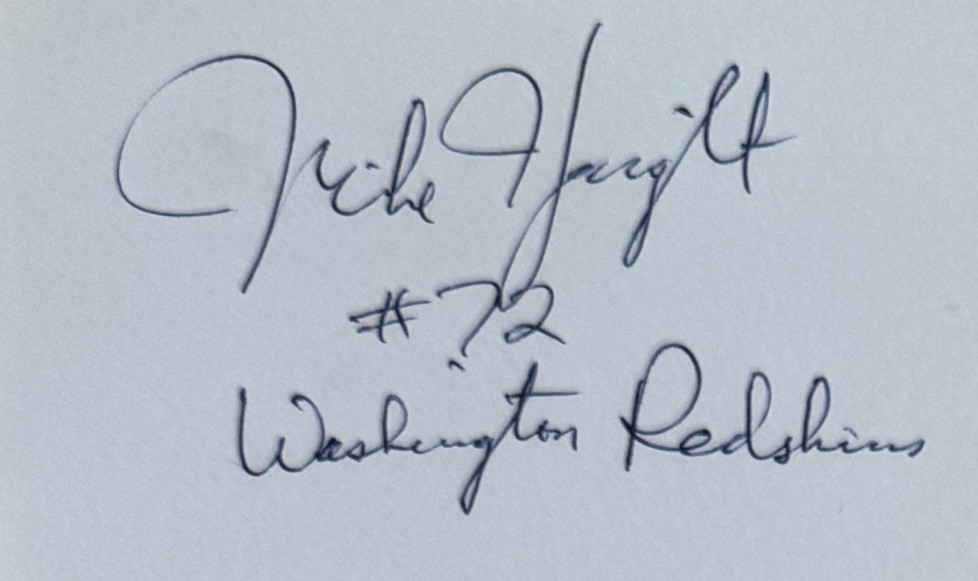 Mike Haight
#72
Washington Redskins